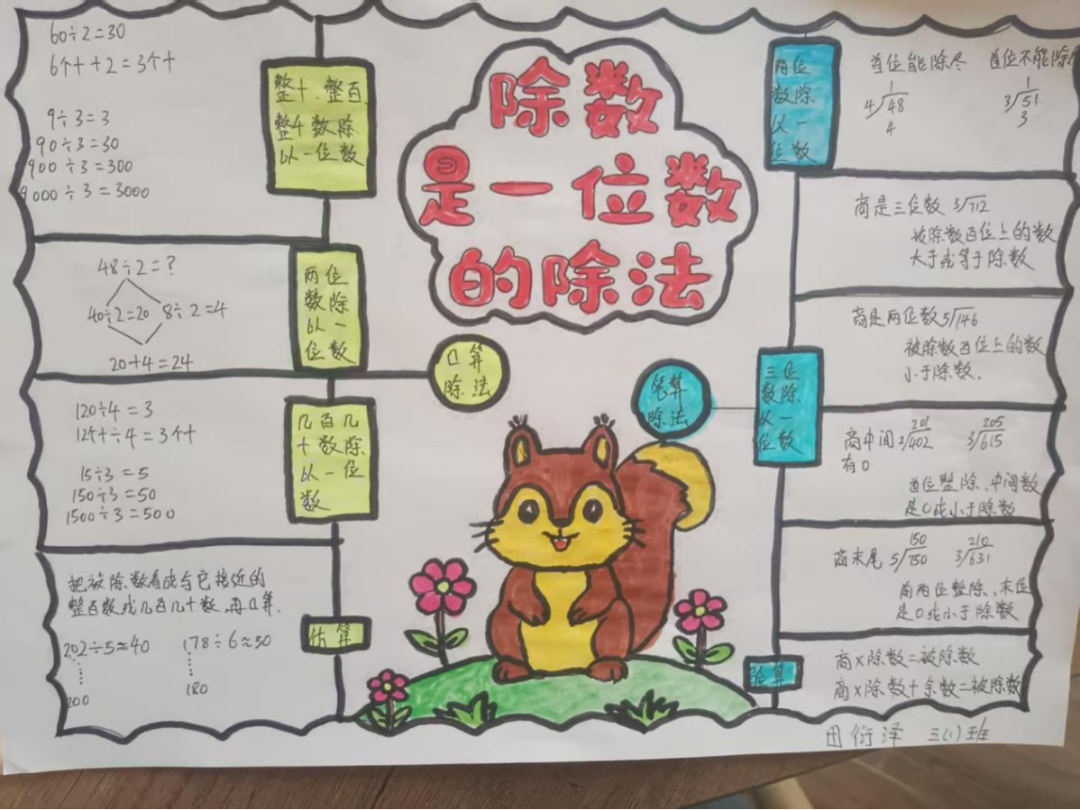 除数
是一位数
的除法
口算
除法
整十、整百、
整千数除
以一位数
60÷2=30
6个十÷2=3个十
9÷3=3
90÷3=30
900÷3=300
9000÷3=3000
两位
数除
以一
位数
48÷2=?
40÷2=20 8÷2=4
20+4=24
几百几
十数除
以一位
数
120÷4=3
12个十÷4=3个十
15÷3=5
150÷3=50
1500÷3=500
估算
把被除数看成与它接近的
整百数或几百几十数,再口算.
202÷5≈40 178÷6≈30
200 180
笔算
除法
两位
数除
以一
位数
首位能除尽 首位不能除尽
1 1
4√48 3√51
4 3
三位
数除
以一
位数
商是三位数 3√712
被除数百位上的数
大于或等于除数
商是两位数 5√146
被除数百位上的数
小于除数.
201 205
商中间 2√402 3√615
有0
首位整除、中间数
是0或小于除数
150 210
商末尾 5√750 3√631
前两位整除、末位
是0或小于除数
验算
商×除数=被除数
商×除数+余数=被除数
田衍泽 三(1)班